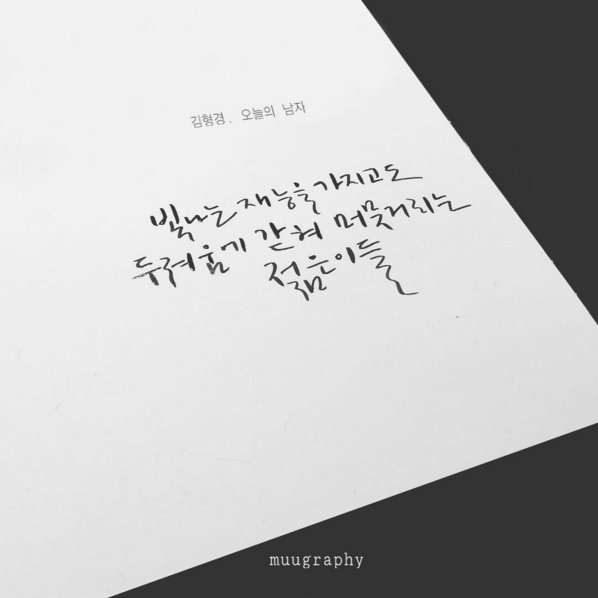 김형경. 오늘의 남자
빛나는 재능을 가지고도
두려움에 갇혀 머뭇거리는
젊은이들
muugraphy